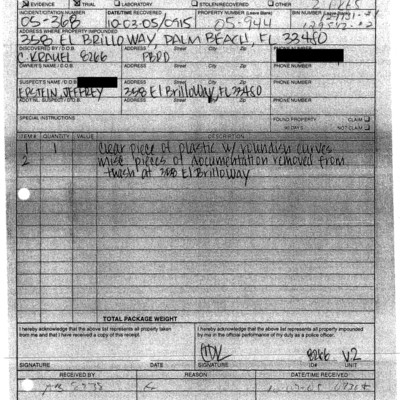 EVIDENCE TRIAL LABORATORY STOLEN/RECOVERED OTHER
INCIDENT/CITATION NUMBER DATE/TIME IMPOUNDED PROPERTY NUMBER (Leave Blank) BIN NUMBER (Leave Blank)
05-368 10-03-05/0915 05-944
ADDRESS WHERE PROPERTY IMPOUNDED
358 EL BRILLOWAY, PALM BEACH, FL 33480
DISCOVERED BY/D.O.B. ADDRESS Street City Zip PHONE NUMBER
C. KRAUEL 8266 PBPD
OWNER'S NAME/D.O.B. ADDRESS Street City Zip PHONE NUMBER
SUSPECT'S NAME/D.O.B. ADDRESS Street City Zip PHONE NUMBER
EPSTEIN, JEFFREY 358 El Brilloway, FL 33480
ADD'TNL. SUSPECT/D.O.B. ADDRESS Street City Zip PHONE NUMBER
SPECIAL INSTRUCTIONS FOUND PROPERTY CLAIM
90 DAYS NOT CLAIM
ITEM # QUANTITY VALUE DESCRIPTION
1 1 Clear piece of plastic w/ roundish curves
2 misc pieces of documentation removed from
trash at 358 El Brilloway
TOTAL PACKAGE WEIGHT
I hereby acknowledge that the above list represents all property taken from me and that I received a copy of this receipt.
I hereby acknowledge that the above list represents all property impounded by me in the official performance of my duty as a police officer.
8266 V2
SIGNATURE DATE SIGNATURE ID# UNIT
RECEIVED BY REASON DATE/TIME RECEIVED